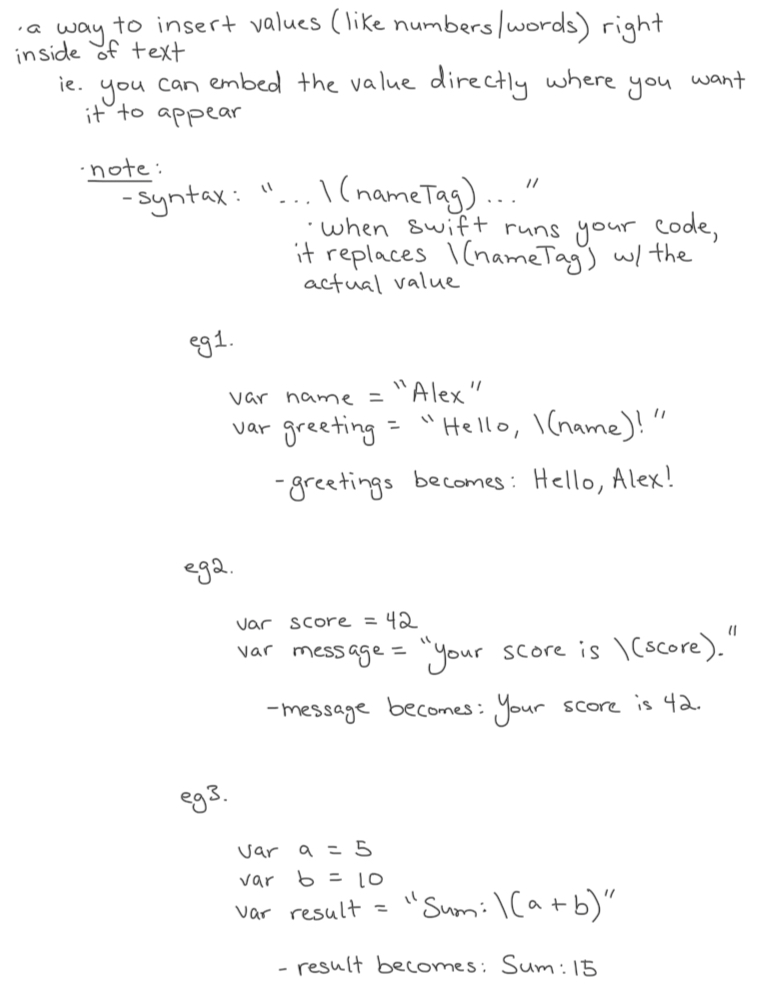 ·a way to insert values (like numbers/words) right
inside of text
ie. you can embed the value directly where you want
it to appear
·note:
-syntax: "...\(nameTag)..."
·when swift runs your code,
it replaces \(nameTag) w/ the
actual value
eg1.
var name = "Alex"
var greeting = "Hello, \(name)!"
-greetings becomes: Hello, Alex!
eg2.
var score = 42
var message = "your score is \(score)."
-message becomes: Your score is 42.
eg3.
var a = 5
var b = 10
var result = "Sum:\(a+b)"
- result becomes: Sum:15